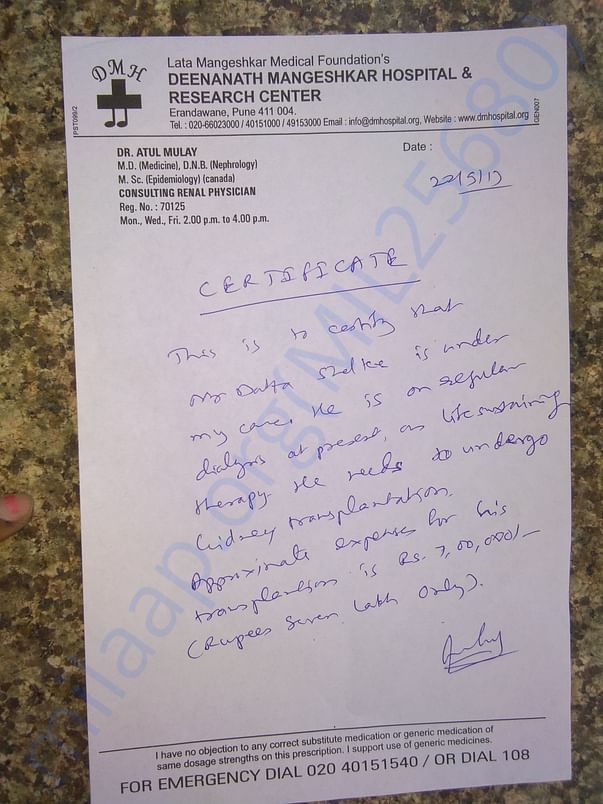 DMH
Lata Mangeshkar Medical Foundation's
DEENANATH MANGESHKAR HOSPITAL &
RESEARCH CENTER
Erandawane, Pune 411 004.
Tel. : 020-66023000 / 40151000 / 49153000 Email : info@dmhospital.org, Website : www.dmhospital.org
PST099/2
GEN007
DR. ATUL MULAY
M.D. (Medicine), D.N.B. (Nephrology)
M. Sc. (Epidemiology) (canada)
CONSULTING RENAL PHYSICIAN
Reg. No. : 70125
Mon., Wed., Fri. 2.00 p.m. to 4.00 p.m.
Date :
CERTIFICATE
This is to certify that
Mr Datta Shelke is under
my care. He is on regular
dialysis at present, as life sustaining
therapy. He needs to undergo
kidney transplantation.
Approximate expenses for his
transplantation is Rs. 7,00,000/-
(Rupees Seven Lakh Only).
I have no objection to any correct substitute medication or generic medication of
same dosage strengths on this prescription. I support use of generic medicines.
FOR EMERGENCY DIAL 020 40151540 / OR DIAL 108